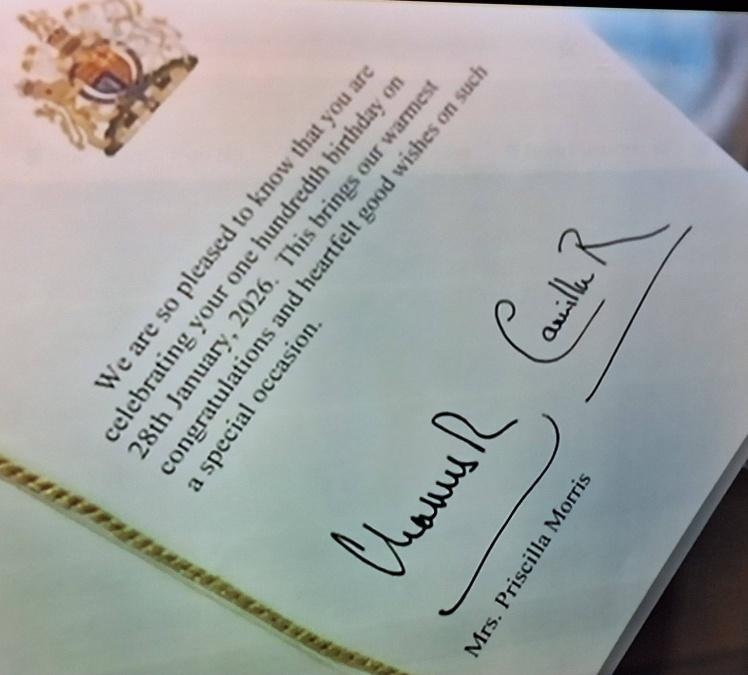 We are so pleased to know that you are
celebrating your one hundredth birthday on
28th January, 2026.  This brings our warmest
congratulations and heartfelt good wishes on such
a special occasion.
Charles R
Camilla R
Mrs. Priscilla Morris